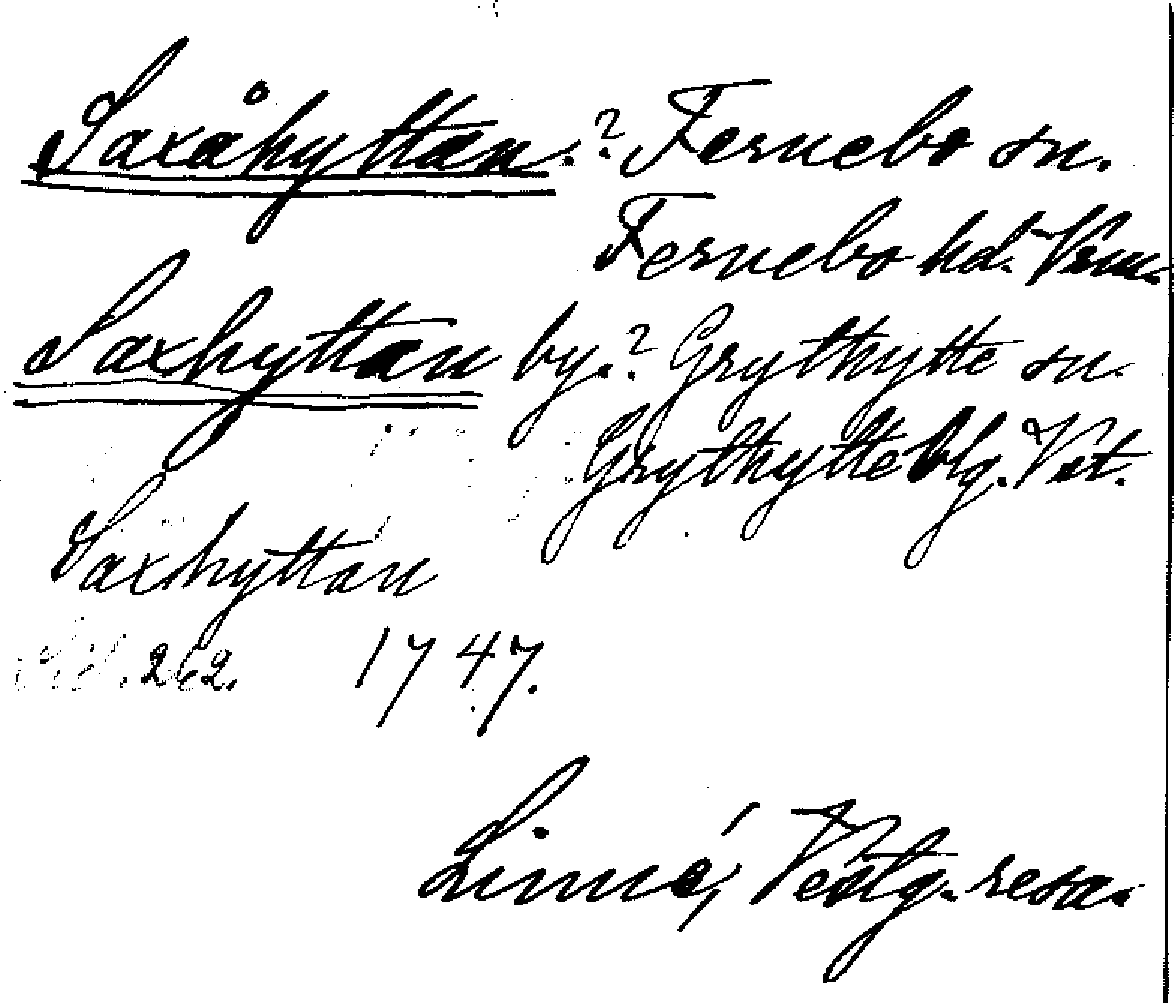 Saxåhyttan.? Fernebo sn.
Fernebo hd. Vrm.
Saxhyttan by.? Grythytte sn.
Grythytte blg. Vst.
Saxhyttan
262. 1747.
Linné, Vestg. resa.